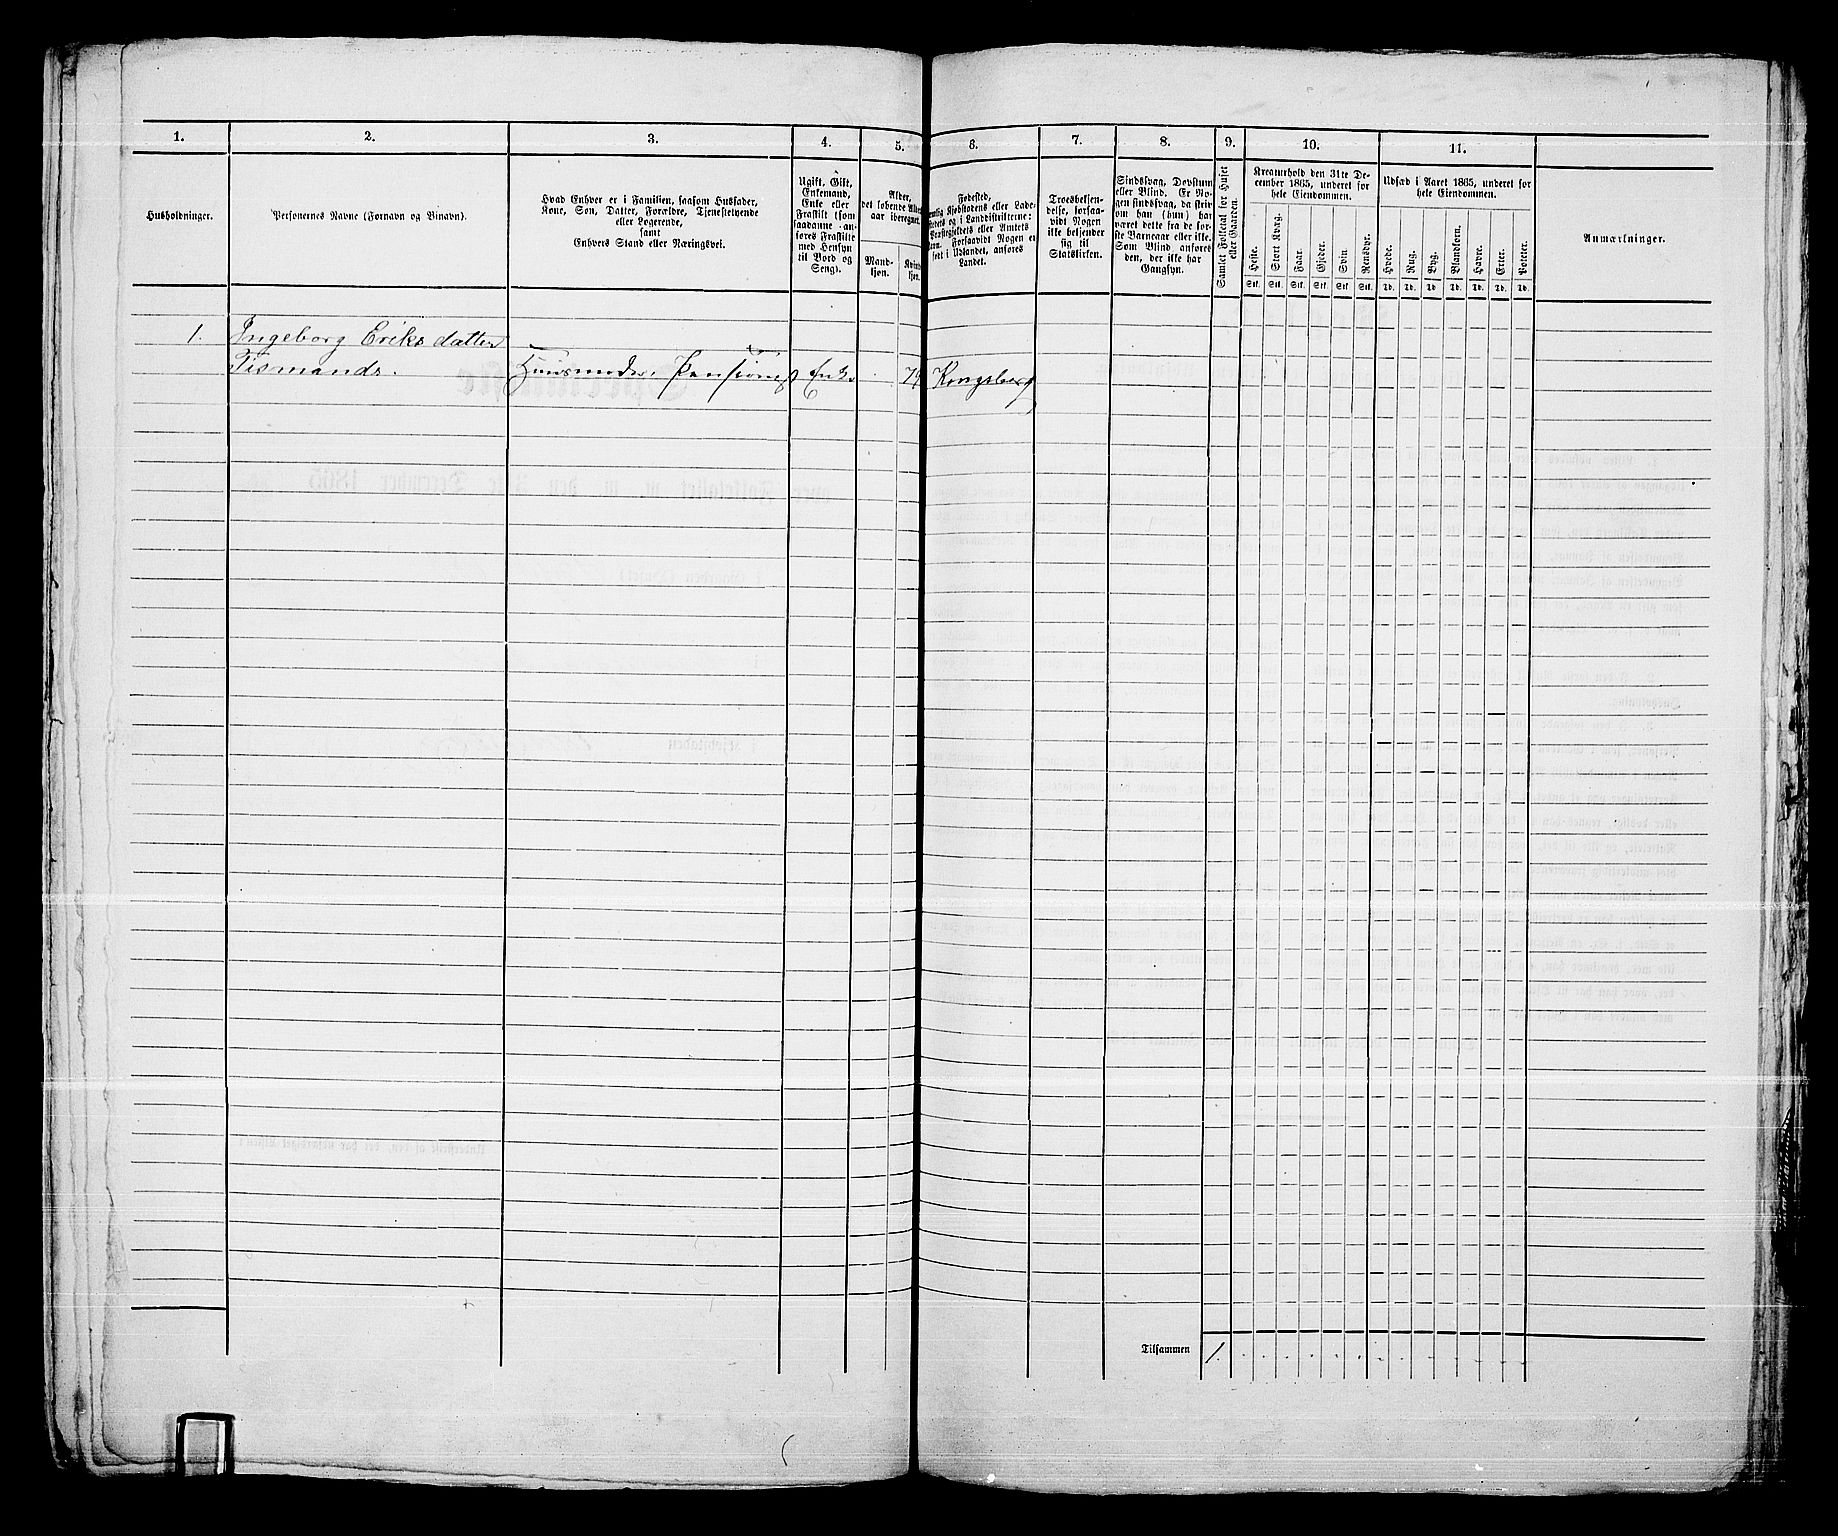 1. 2. 3. 4. 5. 6. 7. 8. 9. 10. 11.
Husholdninger.
Personernes Navne (Fornavn og Binavn).
Hvad Enhver er i Familien, saasom Husfader,
Kone, Søn, Datter, Forældre, Tjenestetyende
eller Logerende,
samt
Enhvers Stand eller Næringsvei.
Ugift, Gift,
Enkemand,
Enke eller
Fraskilt (som
saadanne an-
føres Fraskilte
med Hensyn
til Bord og
Seng).
Alder,
det løbende Alders-
aar iberegnet.
Mand-
kjøn.
Kvinde-
kjøn.
Fødested,
Kjøbstadens eller Lade-
stedets og i Landdistrikterne:
Præstegjeldets eller Amtets
Navn. Forsaavidt Nogen er
født i Udlandet, anføres
Landet.
Troesbekjen-
delse, forsaa-
vidt Nogen
ikke bekjender
sig til
Statskirken.
Sindssvag, Døvstum
eller Blind. Er No-
gen sindssvag, da skriv
om han (hun) har
været dette fra de før-
ste Barneaar eller ikke.
Som Blind anføres
den, der ikke har
Gangsyn.
Samlet Folketal for Huset
eller Gaarden.
Kreaturhold den 31te De-
cember 1865, underet for
hele Eiendommen.
Heste. Stort Kvæg. Faar. Gjeder. Svin Rensdyr.
Stk. Stk. Stk. Stk. Stk. Stk.
Udsæd i Aaret 1865, underet for
hele Eiendommen.
Hvede. Rug. Byg. Blandkorn. Havre. Erter. Poteter.
Td. Td. Td Td. Td. Td. Td.
Anmærkninger.
1. Ingeborg Eriks datter
Tismands. Huusmoder, Pensionist Enke 79 Kongsberg
Tilsammen 1.